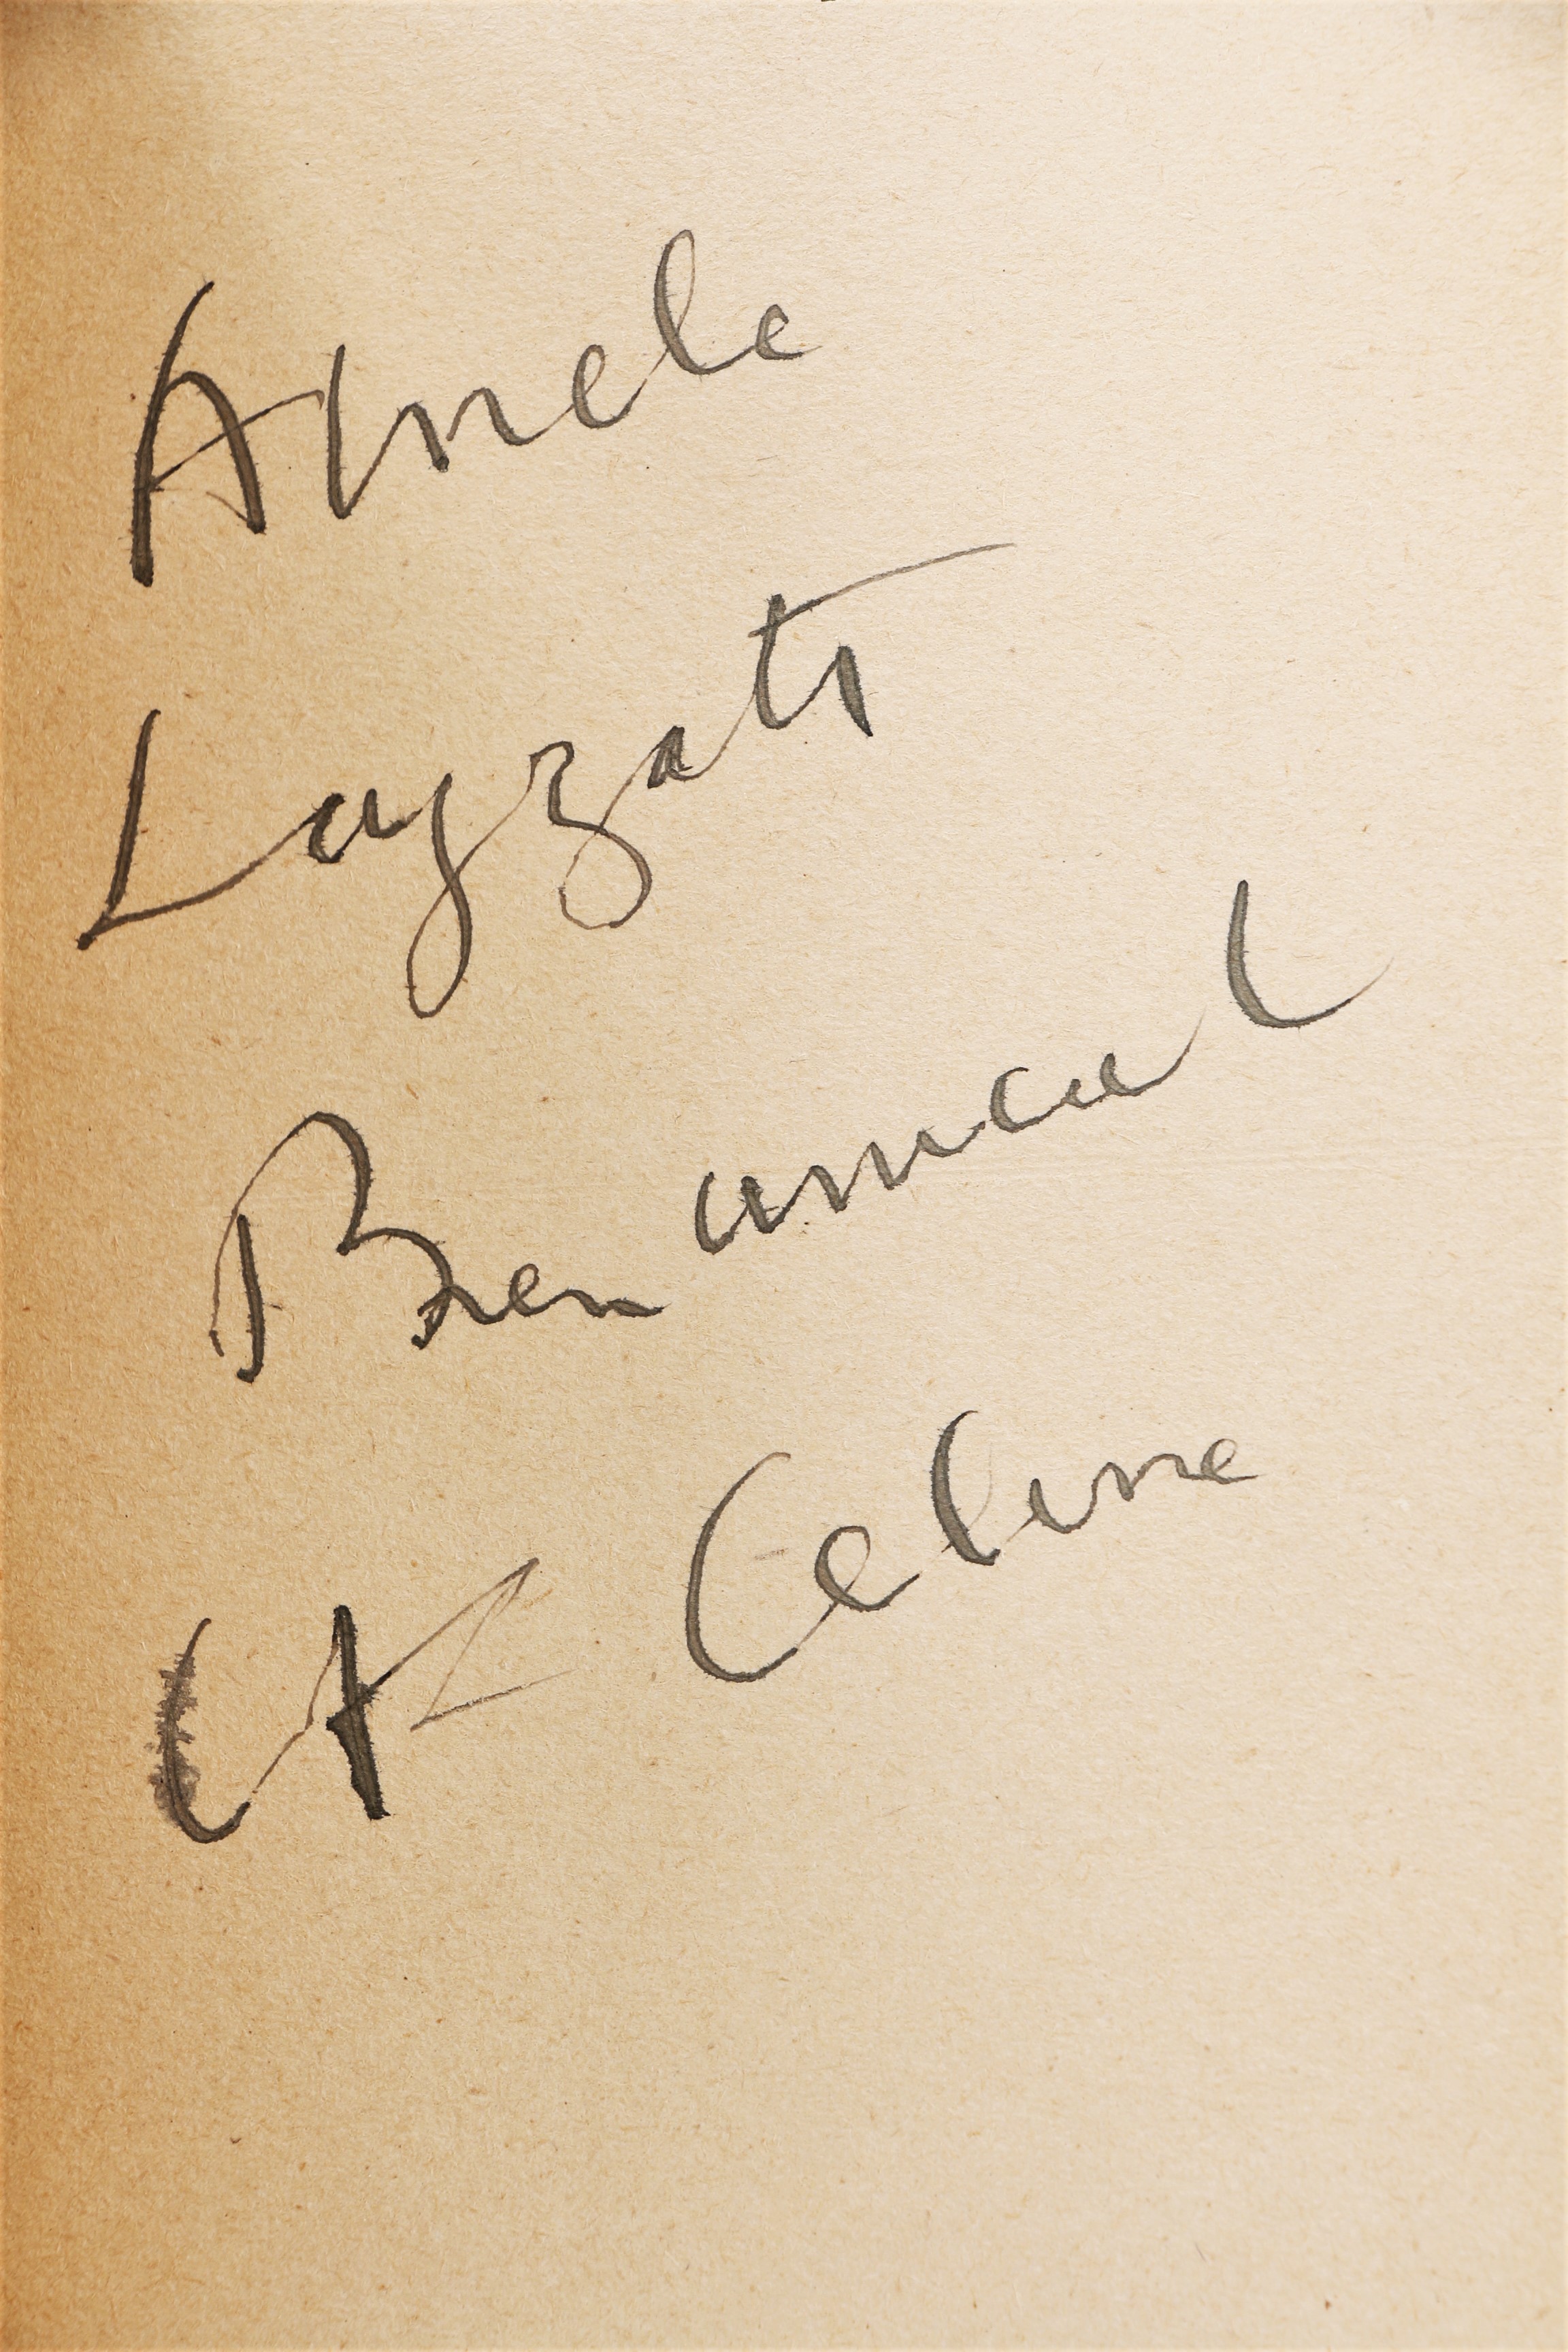 Luzzati
Bien amical
LF Celine